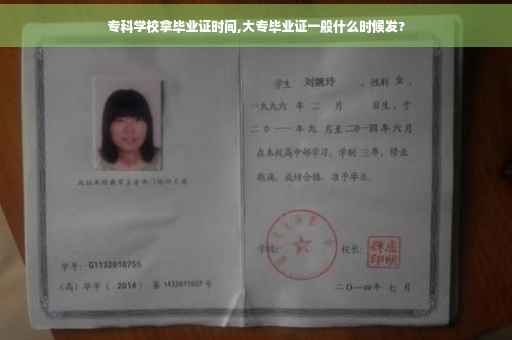 专科学校拿毕业证时间,大专毕业证一般什么时候发?
学生 刘婉玲 ,性别 女 ,
一九九六 年 二 月 日生,于
二〇一一年九 月至二〇一四年 六 月
在本校高中部学习,学制 三年,修业
期满,成绩合格,准予毕业。
学号: G1132010755
(高)毕字( 2014 )第 1432011027 号
学校:
校长:
二〇一四年 七 月